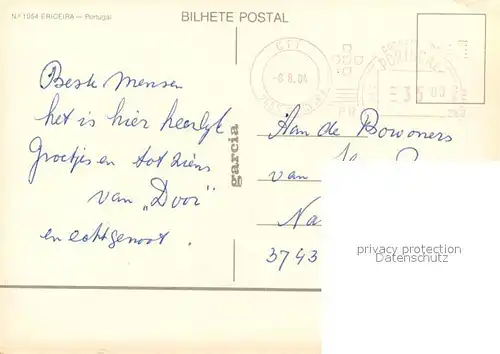 Nº 1054 ERICEIRA — Portugal
BILHETE POSTAL
CTT
-8.8.84
CORREIO
PORTUGAL
35 00
PR
garcia
Beste Mensen
het is hier heerlijk
Groetjes en tot ziens
van „Door"
en echtgenoot.
Aan de Bewoners
van
Na
3743
privacy protection
Datenschutz